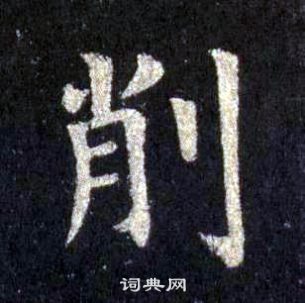 削
词典网